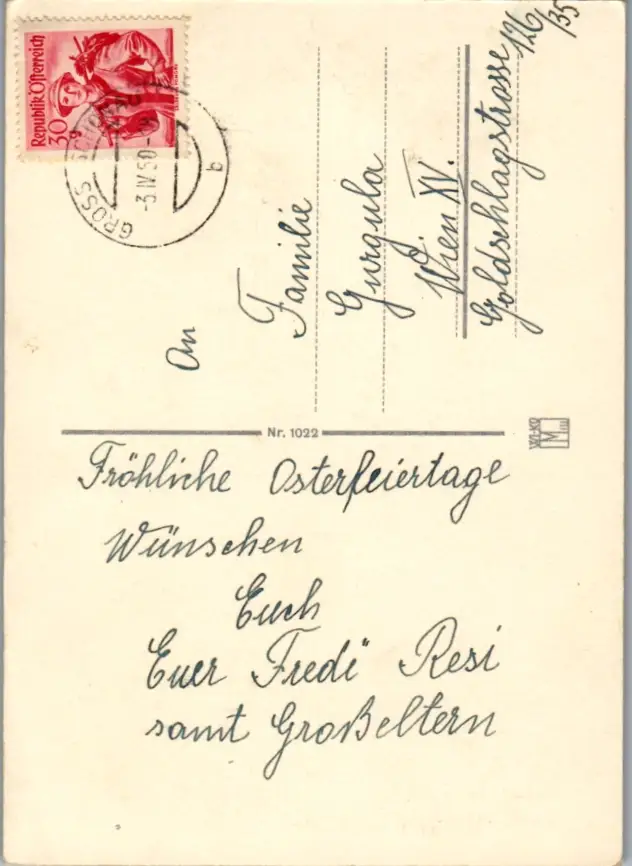 Republik Österreich
30
GROSS
-3.IV.50-
b
An
Familie
Gurgula
Wien XV.
Goldschlagstrasse 126/35
Nr. 1022
WI-KO
M
Fröhliche Osterfeiertage
Wünschen
Euch
Euer Fredi Resi
samt Großeltern